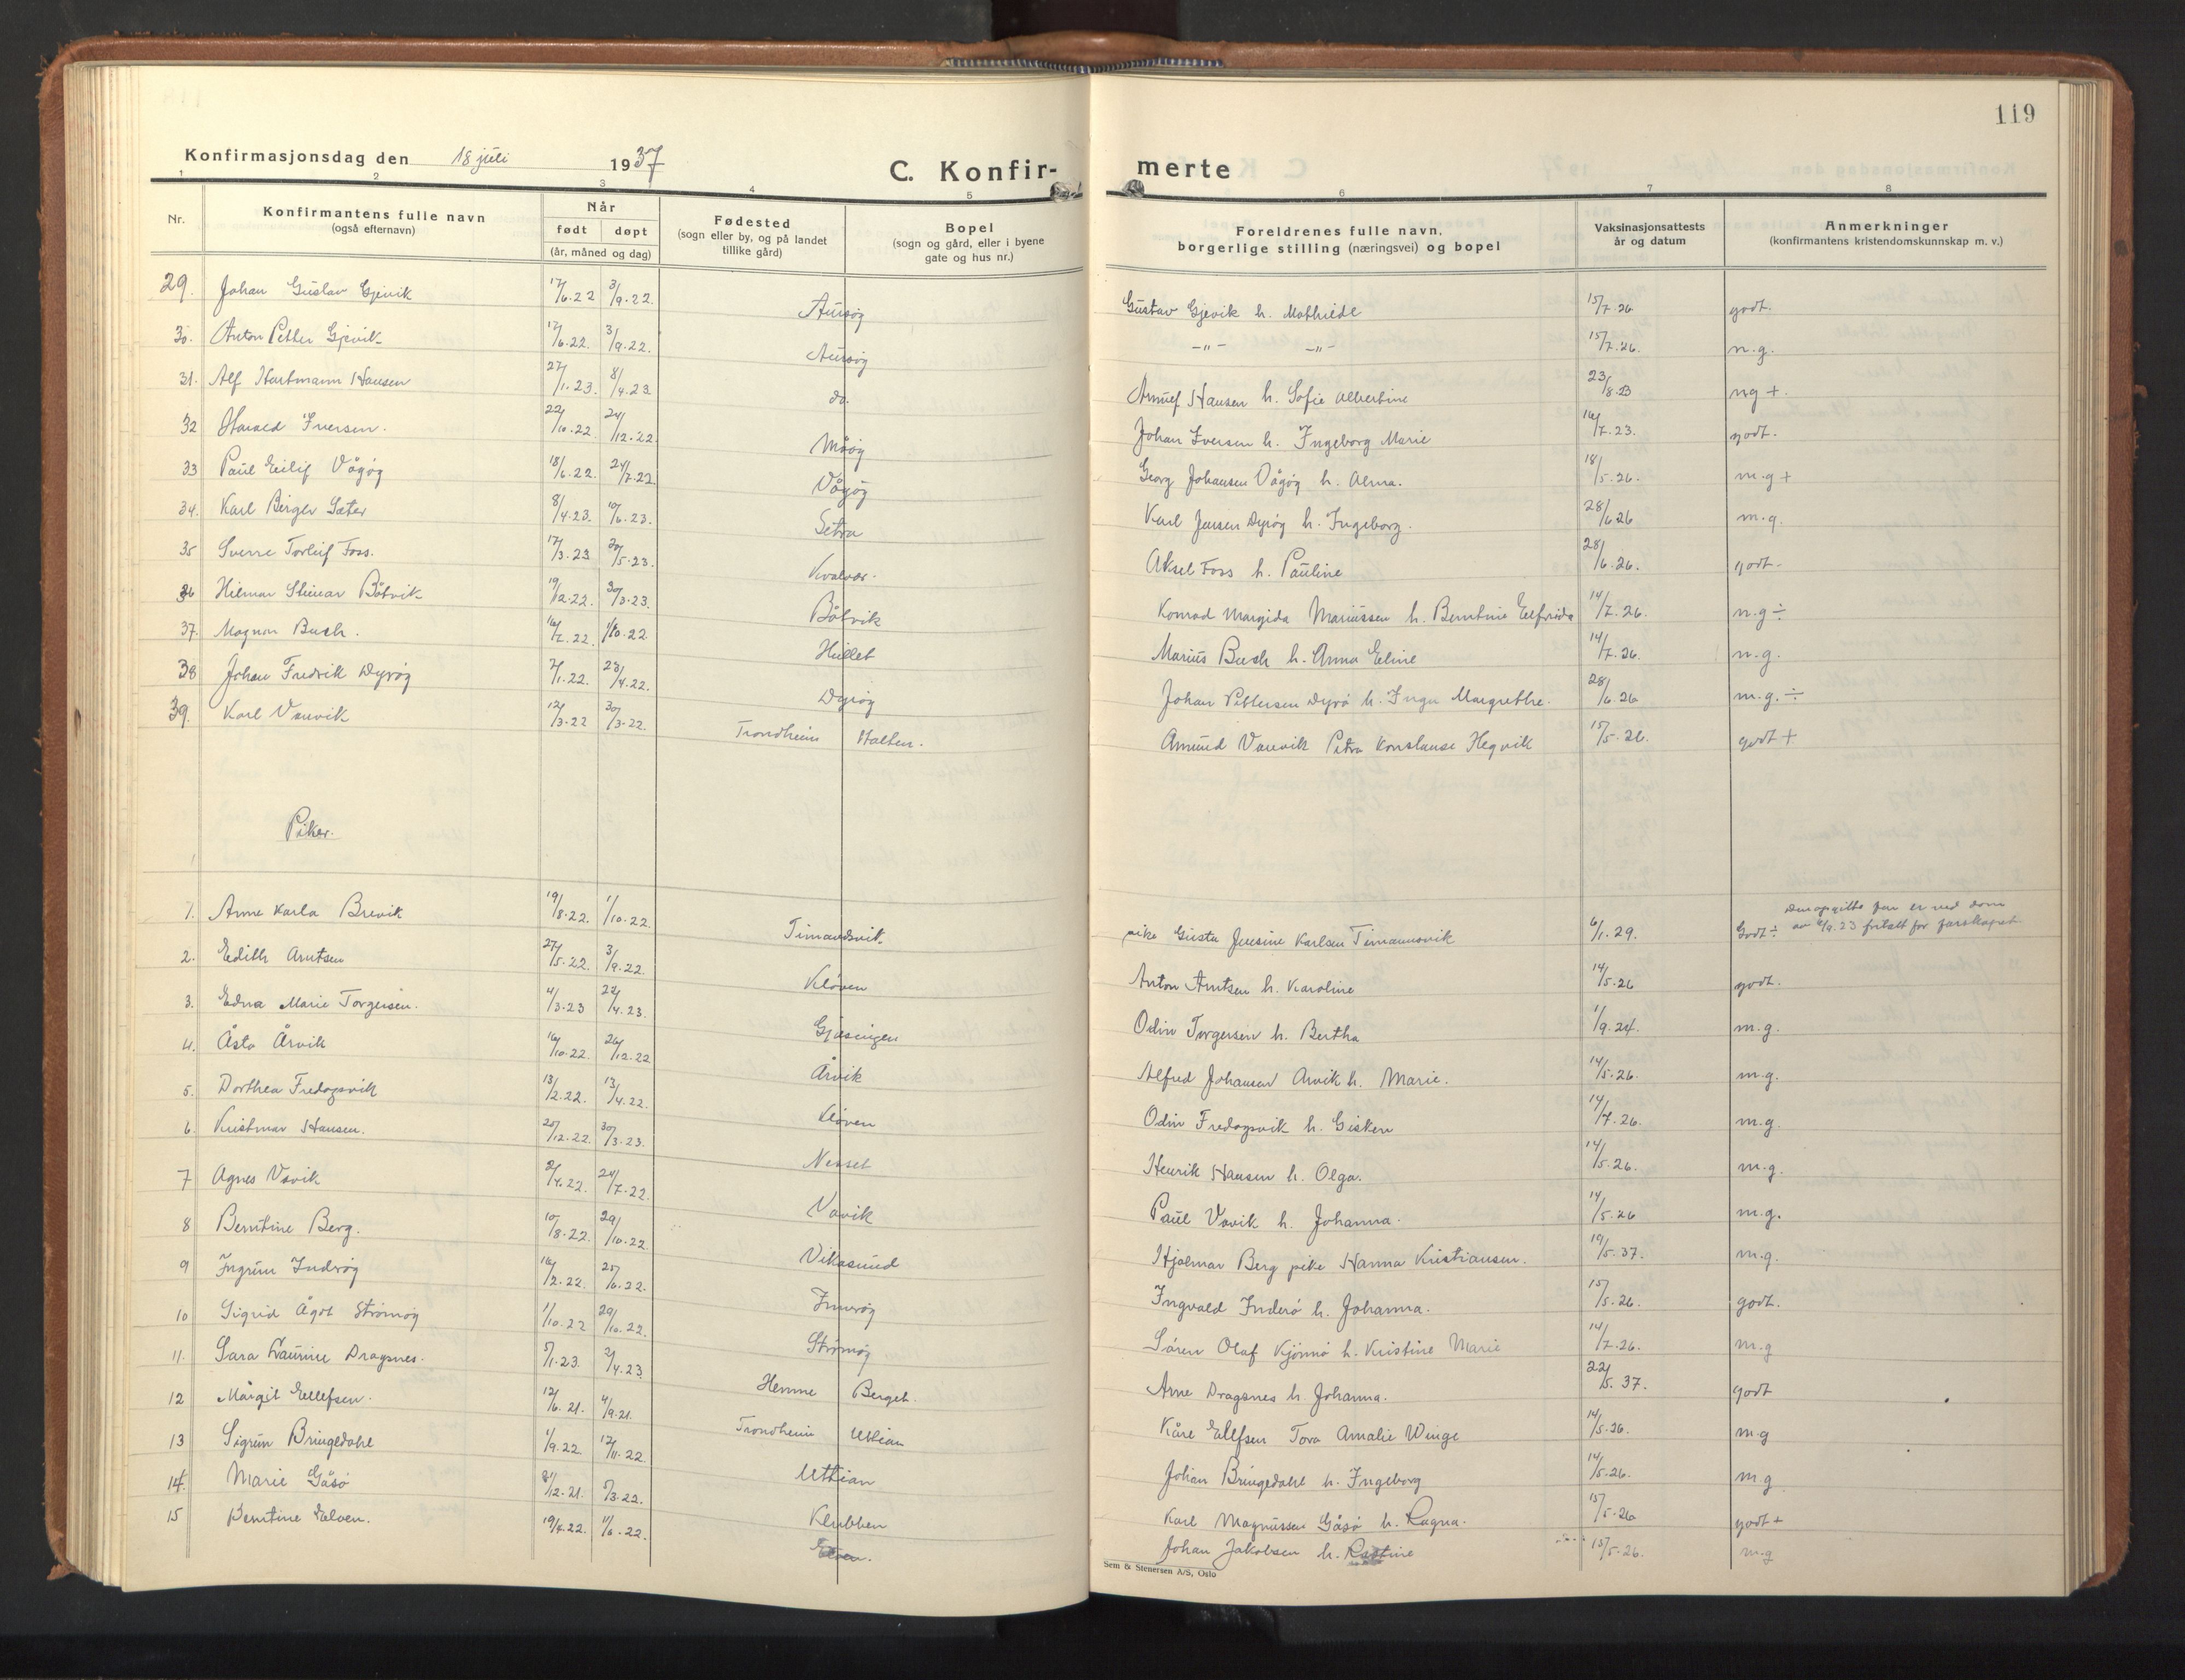 119
Konfirmasjonsdag den 18 juli 1937
C. Konfir- merte
1 2 3 4 5 6 7 8
Nr.
Konfirmantens fulle navn
(også efternavn)
Når
født døpt
(år, måned og dag)
Fødested
(sogn eller by, og på landet
tillike gård)
Bopel
(sogn og gård, eller i byene
gate og hus nr.)
Foreldrenes fulle navn,
borgerlige stilling (næringsvei) og bopel
Vaksinasjonsattests
år og datum
Anmerkninger
(konfirmantens kristendomskunnskap m. v.)
29. Johan Gustav Gjevik 17/6.22 3/9.22. Aursøy Gustav Gjevik h. Mathilde 15/7.26 godt.
30. Anton Petter Gjevik 17/6.22. 3/9.22. Aursøy -"- -"- 15/7.26. n.g.
31. Alf Hartmann Hansen 27/1.23. 8/4.23 do. Arnulf Hansen h. Sofie Albertine 23/8.23 ng +.
32 Harald Iversen. 22/10.22. 24/12.22. Måøy Johan Iversen h. Ingeborg Marie 16/7.23. godt.
33 Paul Eilif Vågøy 18/6.22. 24/7.22 Vågøy Georg Johansen Vågøy h. Alma. 18/5.26. m.g +
34. Karl Birger Sæter 8/4.23. 10/6.23. Setra Karl Jensen Dyrøy h. Ingeborg. 28/6 26 m.g.
35 Sverre Torleif Foss. 17/3.23 20/5.23. Kvalvær. Aksel Foss h. Pauline 28/6.26. godt.
36 Hilmar Steinar Båtvik 19/12.22. 30/3.23. Båtvik Konrad Margido Mariussen h. Berntine Elfrida 14/7.26. n.g ÷
37. Magnar Buch. 16/7.22. 1/10.22 Hullet Marius Buch h. Anna Eline 14/7.26. n.g.
38 Johan Fredrik Dyrøy 7/1.22. 23/4.22. Dyrøy Johan Pettersen Dyrø h. Inga Margrethe. 28/6 26 m.g. ÷
39. Karl Vanvik 12/3.22 30/3.22. Trondheim Halten. Amund Vanvik Petra Konstanse Hegvik 15/5.26. godt +
Piker.
1. Anne Karla Brevik 19/8.22. 1/10.22. Timandsvik pike Gusta Jensine Karlsen Timannsvik 6/1.29. Godt ÷ Den opgitte far er ved dom av 6/9.23 fritatt for farskapet.
2. Edith Arntsen 27/5.22. 3/9.22. Kløven Anton Arntsen h. Karoline 14/5.26 godt.
3. Edna Marie Torgersen. 4/3.23 22/4.23. Gjæsingen Odin Torgersen h. Bertha 1/9.24. m.g.
4. Åsta Årvik 16/10.22. 26/12.22 Årvik Alfred Johansen Arvik h. Marie. 14/5.26. m.g.
5. Dorthea Fredagsvik 13/2.22. 13/4.22. Kløven Odin Fredagsvik h. Gisken 14/7.26. m.g.
6. Kristmar Hansen. 25/12.22. 30/3.23. Nesset Henrik Hansen h. Olga. 14/5.26. m.g.
7 Agnes Vavik 2/4.22. 24/7.22. Vavik Paul Vavik h. Johanna. 14/5.26 m.g.
8 Berntine Berg. 10/8.22. 29/10.22. Vikasund Hjalmar Berg pike Hanna Kristiansen. 19/5.37. m.g.
9 Ingrun Indrøy 16/2.22. 25/6.22. Innerøy Ingvald Inderø h. Johanna. 15/5.26. godt.
10 Sigrid Ågot Strømøy 1/10.22 29/10.22. Strømøy Søren Olaf Kjønnø h. Kristine Marie 14/7.26. m.g
11. Sara Laurine Dragsnes. 5/1.23. 2/4.23 Hemne Berget. Arne Dragsnes h. Johanna. 22/5.37. godt
12 Margit Ellefsen. 12/6.21. 4/9.21. Trondheim Uttian Kåre Ellefsen Tora Amalie Winge 14/5.26. m.g
13 Sigrun Bringedahl 1/9.22. 12/11.22 Uttian Johan Bringedahl h. Ingeborg 14/5.26. m.g
14. Marie Gåsø 31/12.21. 5/3.22. Klubben Karl Magnussen Gåsø h. Ragna. 15/5.26 godt +
15 Berntine Elven. 19/4.22. 11/6.22. Elven. Johan Jakobsen h. 15/5.26. m.g
Sem & Stenersen A/S, Oslo